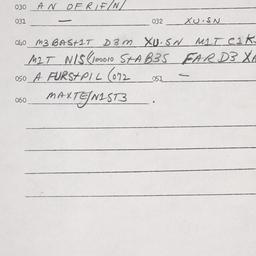 030 AN OFRIFINI
031 — 032 XU.SN
040 M3BAS$1T D3M XU.SN M1T C1K
M1T NIS(100010 STAB35 FARD3
050 A FURST+PIL (072 051 —
060 MAXTE/N1ST3.